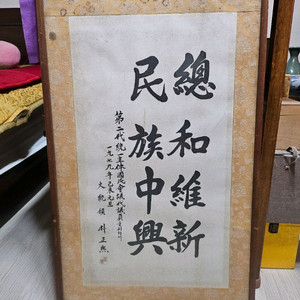 總和維新
民族中興
第二代統一主体國民會議代議員
一九七九年己未元旦
大統領 朴正熙